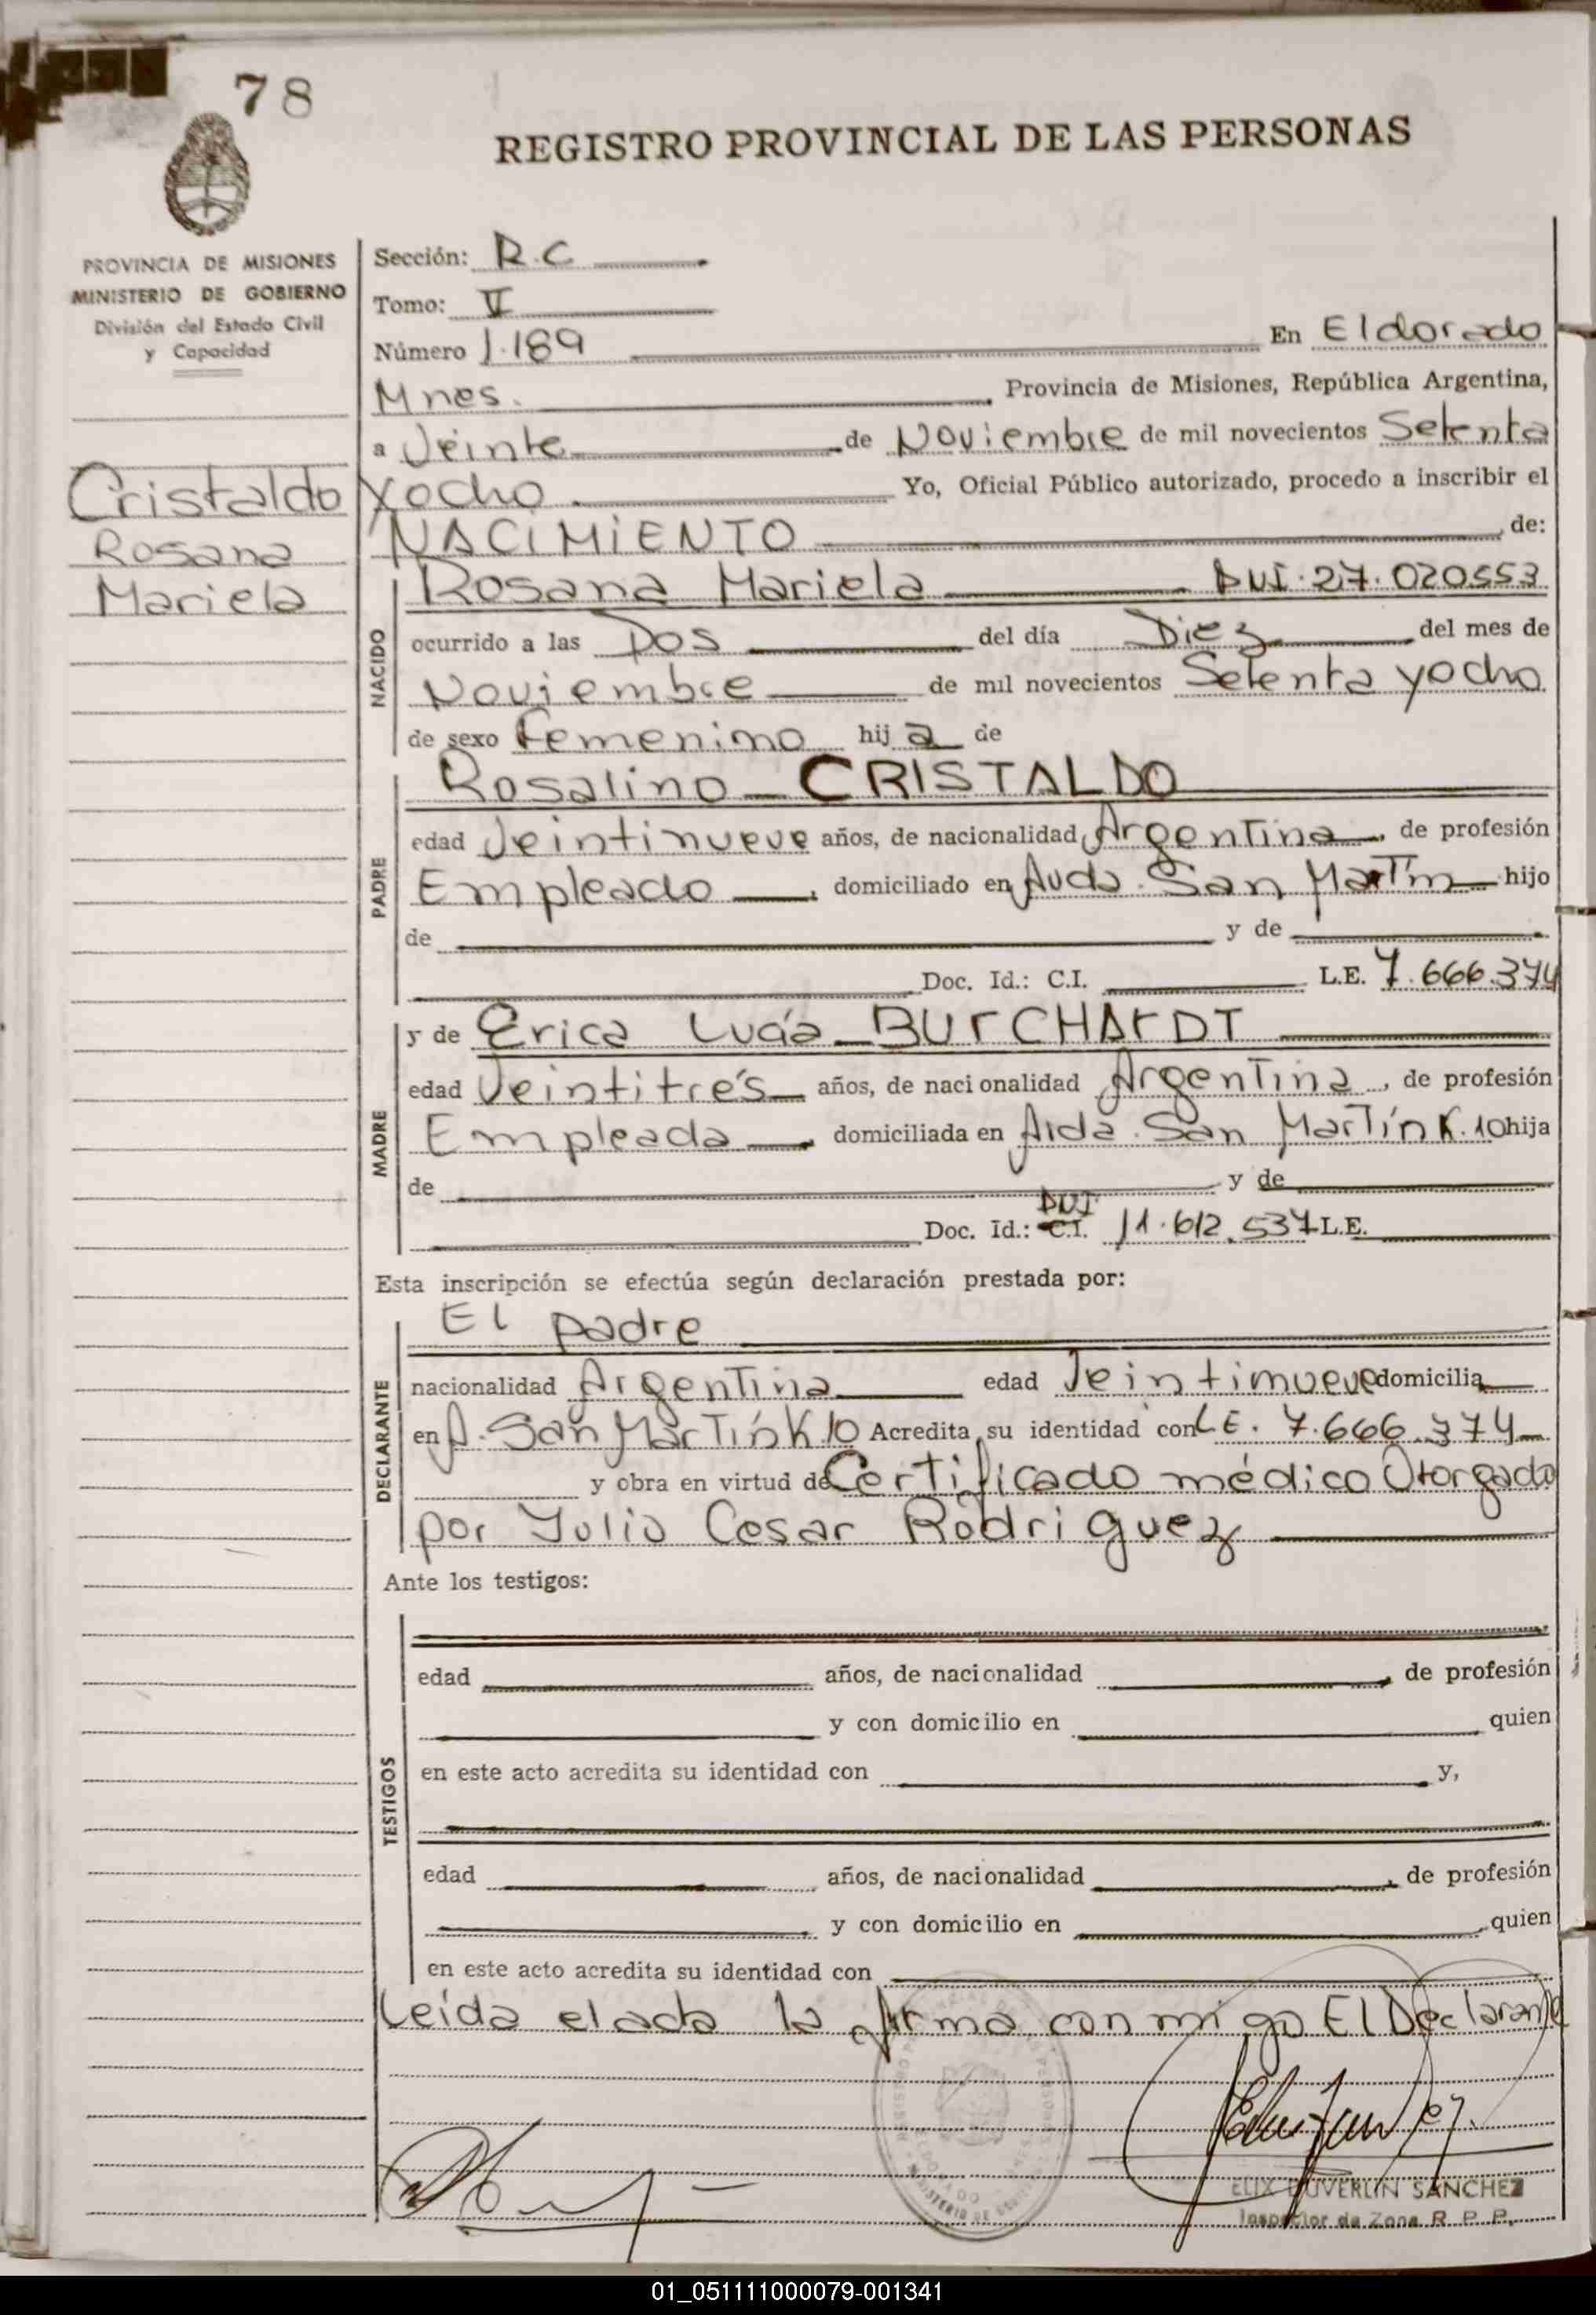 78
REGISTRO PROVINCIAL DE LAS PERSONAS
PROVINCIA DE MISIONES
MINISTERIO DE GOBIERNO
División del Estado Civil
y Capacidad
Cristaldo
Rosana
Mariela
Sección: R.C
Tomo: VI
Número 1.189 En Eldorado
Mnes. Provincia de Misiones, República Argentina,
a Veinte de Noviembre de mil novecientos Setenta
y ocho Yo, Oficial Público autorizado, procedo a inscribir el
NACIMIENTO de:
NACIDO
Rosana Mariela DNI. 27.020553
ocurrido a las Dos del día Diez del mes de
Noviembre de mil novecientos Setenta y ocho
de sexo Femenino hij a de
PADRE
Rosalino CRISTALDO
edad Veintinueve años, de nacionalidad Argentina, de profesión
Empleado, domiciliado en Avda. San Martín hijo
de y de
Doc. Id.: C.I. L.E. 7.666.374
MADRE
y de Erica Lucía BURCHARDT
edad Veintitrés años, de nacionalidad Argentina, de profesión
Empleada, domiciliada en Avda. San Martín K. 10 hija
de y de
DNI
Doc. Id.: C.I. 11.612.537 L.E.
Esta inscripción se efectúa según declaración prestada por:
DECLARANTE
El padre
nacionalidad Argentina edad Veintinueve domicilia
en A. San Martín K.10 Acredita su identidad con L.E. 7.666.374
y obra en virtud de Certificado médico Otorgado
por Julio Cesar Rodriguez
Ante los testigos:
TESTIGOS
edad años, de nacionalidad, de profesión
y con domicilio en quien
en este acto acredita su identidad con y,
edad años, de nacionalidad, de profesión
y con domicilio en quien
en este acto acredita su identidad con
Leída el acta la firma conmigo El Declarante
ELIX DUVERLIN SANCHEZ
Inspector de Zona R. P. P.
01_051111000079-001341